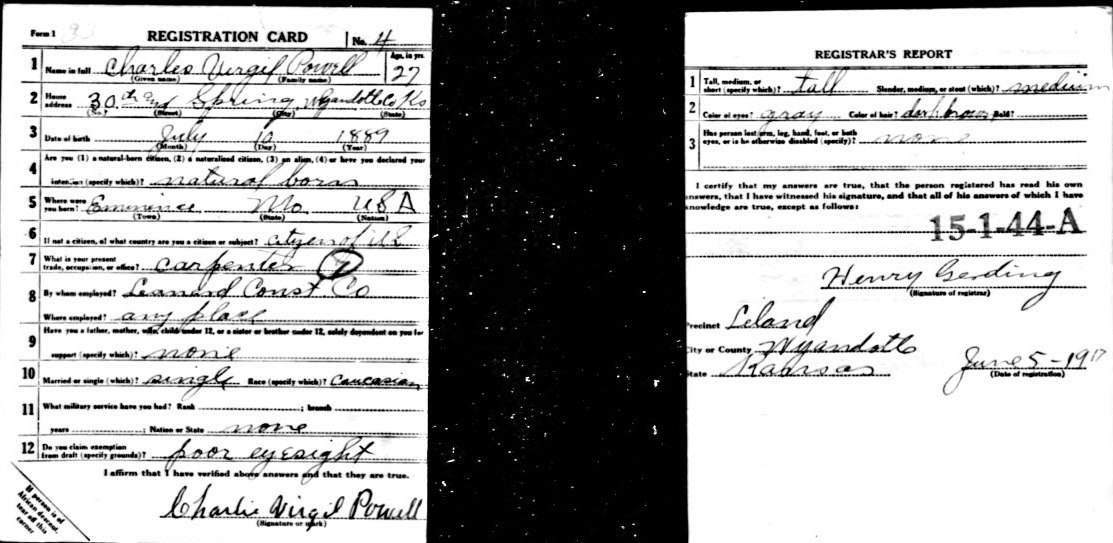 Form 1
REGISTRATION CARD
No. 4
1 Name in full Charles Virgil Powell
(Given name) (Family name)
Age, in yrs.
27
2 Home address 30th and Spring Wyandotte Co Ks
(No.) (Street) (City) (State)
3 Date of birth July 10 1889
(Month) (Day) (Year)
4 Are you (1) a natural-born citizen, (2) a naturalized citizen, (3) an alien, (4) or have you declared your
intention (specify which)? natural born
5 Where were you born? Eminence Mo USA
(Town) (State) (Nation)
6 If not a citizen, of what country are you a citizen or subject? cityen of US
7 What is your present trade, occupation, or office? carpenter
8 By whom employed? Leonard Const Co
Where employed? any place
9 Have you a father, mother, wife, child under 12, or a sister or brother under 12, solely dependent on you for
support (specify which)? none
10 Married or single (which)? single Race (specify which)? Caucasian
11 What military service have you had? Rank ; branch
years ; Nation or State none
12 Do you claim exemption from draft (specify grounds)? poor eyesight
I affirm that I have verified above answers and that they are true.
Charlie Virgil Powell
(Signature or mark)
If person is of
African descent,
tear off this
corner
REGISTRAR'S REPORT
1 Tall, medium, or short (specify which)? tall Slender, medium, or stout (which)? medium
2 Color of eyes? gray Color of hair? dark brown Bald?
3 Has person lost arm, leg, hand, foot, or both eyes, or is he otherwise disabled (specify)? none
I certify that my answers are true, that the person registered has read his own
answers, that I have witnessed his signature, and that all of his answers of which I have
knowledge are true, except as follows:
15-1-44-A
Henry Gerding
(Signature of registrar)
Precinct Leland
City or County Wyandotte
State Kansas
June 5-1917
(Date of registration)